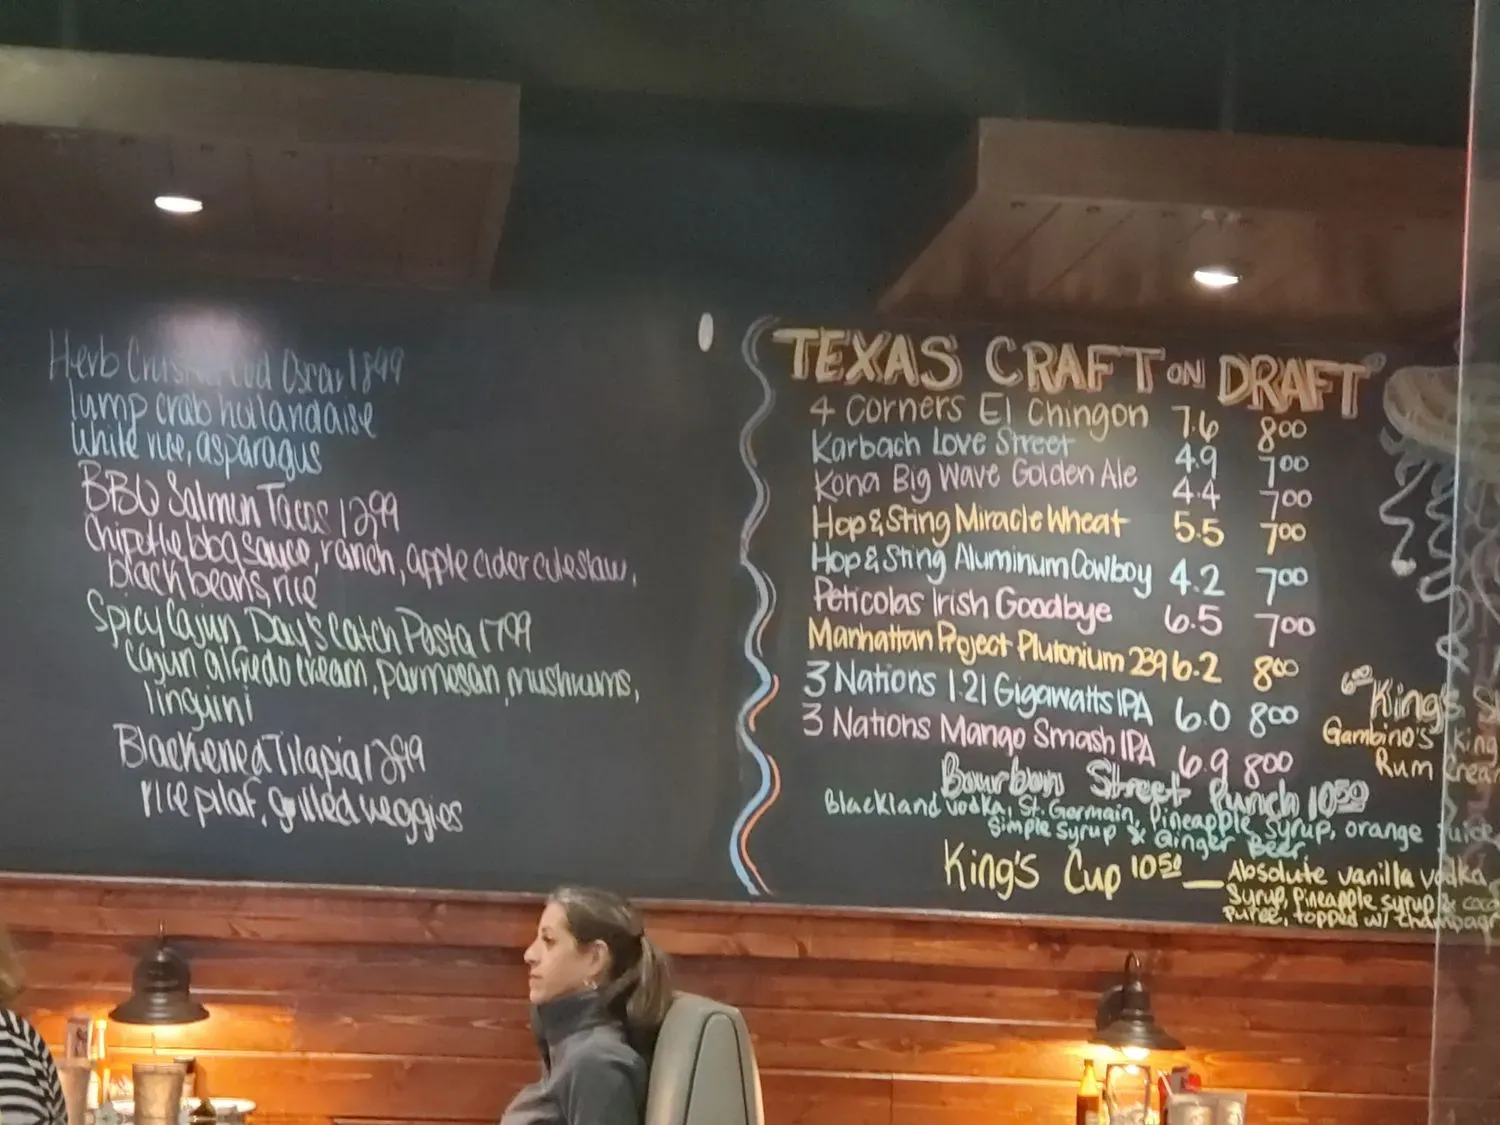 Herb Crusted Cod Oscar 18.99
lump crab hollandaise
white rice, asparagus
BBQ Salmon Tacos 12.99
Chipotle bbq sauce, ranch, apple cider coleslaw,
black beans, rice
Spicy Cajun Day's Catch Pasta 17.99
cajun alfredo cream, parmesan, mushrooms,
linguini
Blackened Tilapia 12.99
rice pilaf, grilled veggies
TEXAS CRAFT ON DRAFT
4 Corners El Chingon 7.6 8.00
Karbach Love Street 4.9 7.00
Kona Big Wave Golden Ale 4.4 7.00
Hop & Sting Miracle Wheat 5.5 7.00
Hop & Sting Aluminum Cowboy 4.2 7.00
Peticolas Irish Goodbye 6.5 7.00
Manhattan Project Plutonium 239 6.2 8.00
3 Nations 1.21 Gigawatts IPA 6.0 8.00
3 Nations Mango Smash IPA 6.9 8.00
Bourbon Street Punch 10.50
Blackland vodka, St. Germain, Pineapple syrup, orange juice,
simple syrup & Ginger Beer
King's Cup 10.50 — Absolute vanilla vodka,
Syrup, Pineapple syrup &
puree, topped w/ champagn
6.00 King's
Gambino's King
Rum Cream